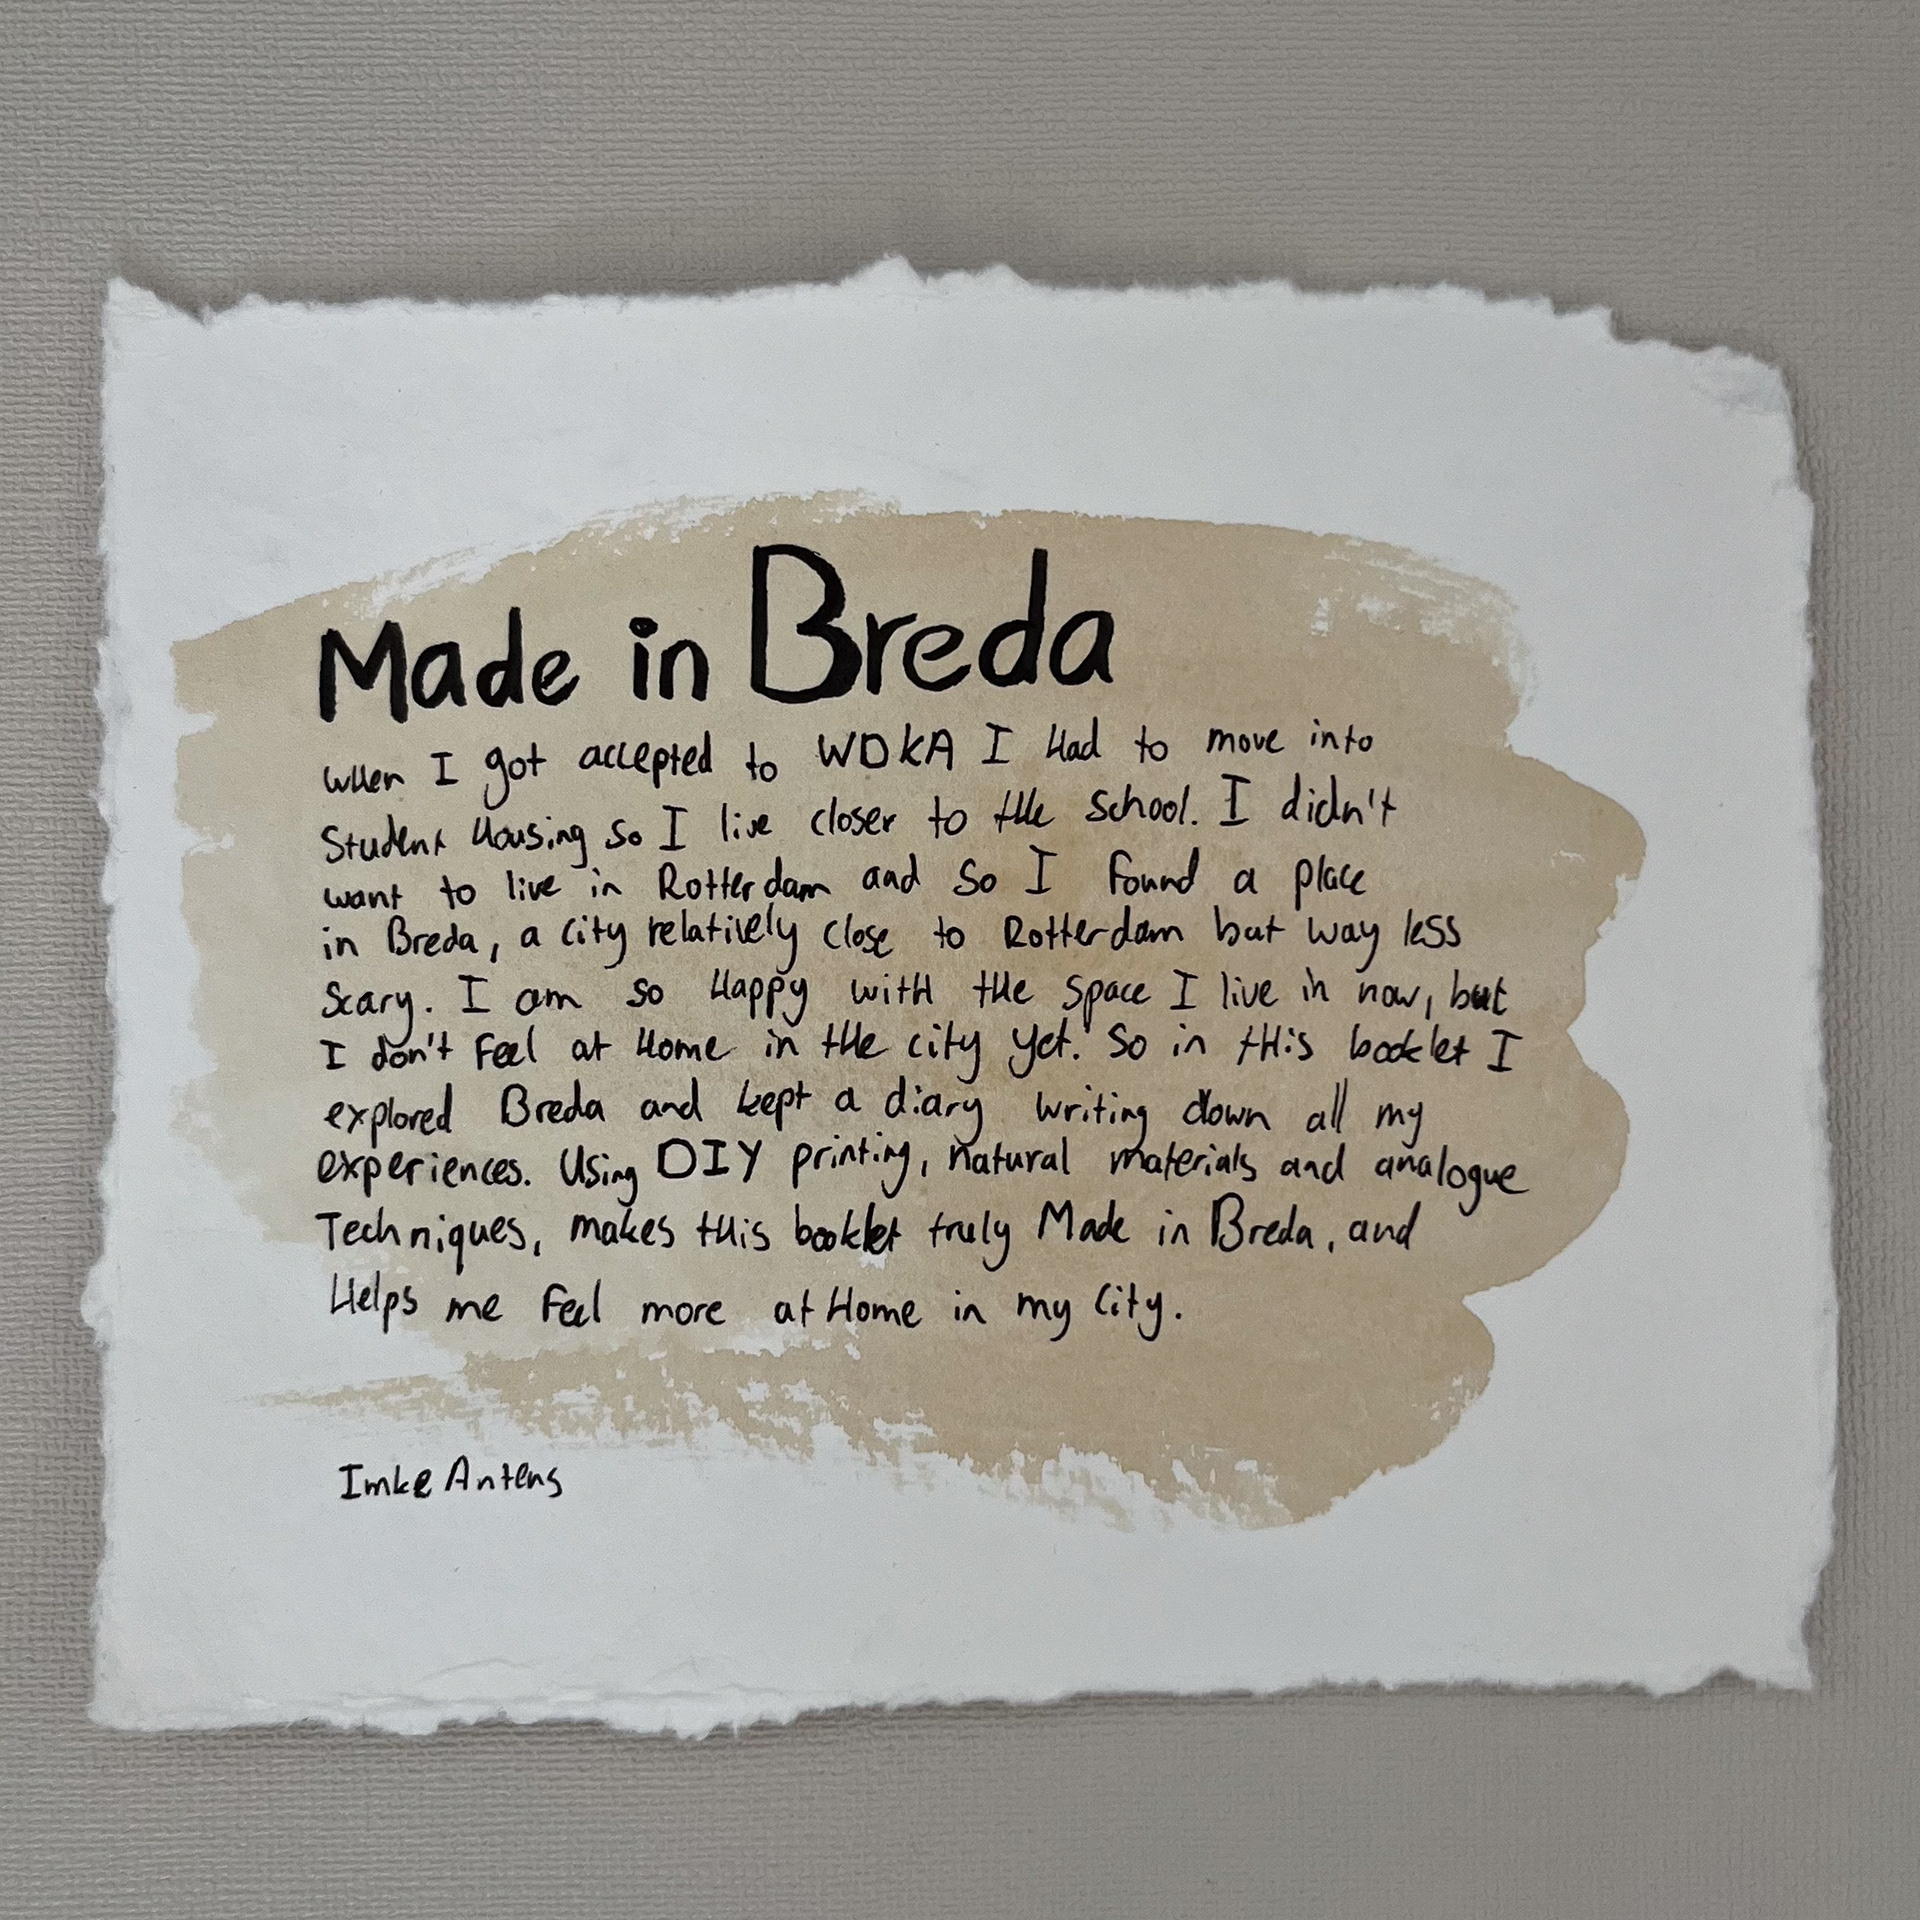 Made in Breda
When I got accepted to WDKA I Had to move into
Student Housing so I live closer to tHe School. I didn't
want to live in Rotterdam and so I found a place
in Breda, a city relatively close to Rotterdam but way less
scary. I am so Happy witH tHe space I live in now, but
I don't feel at Home in tHe city yet. So in tHis booklet I
explored Breda and kept a diary writing down all my
experiences. Using DIY printing, natural materials and analogue
Techniques, makes tHis booklet truly Made in Breda, and
Helps me feel more at Home in my city.
Imke Antens